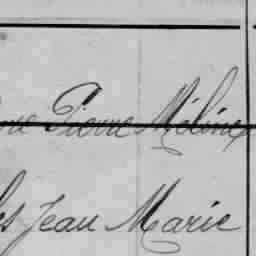 Pierre Méline
es Jean Marie